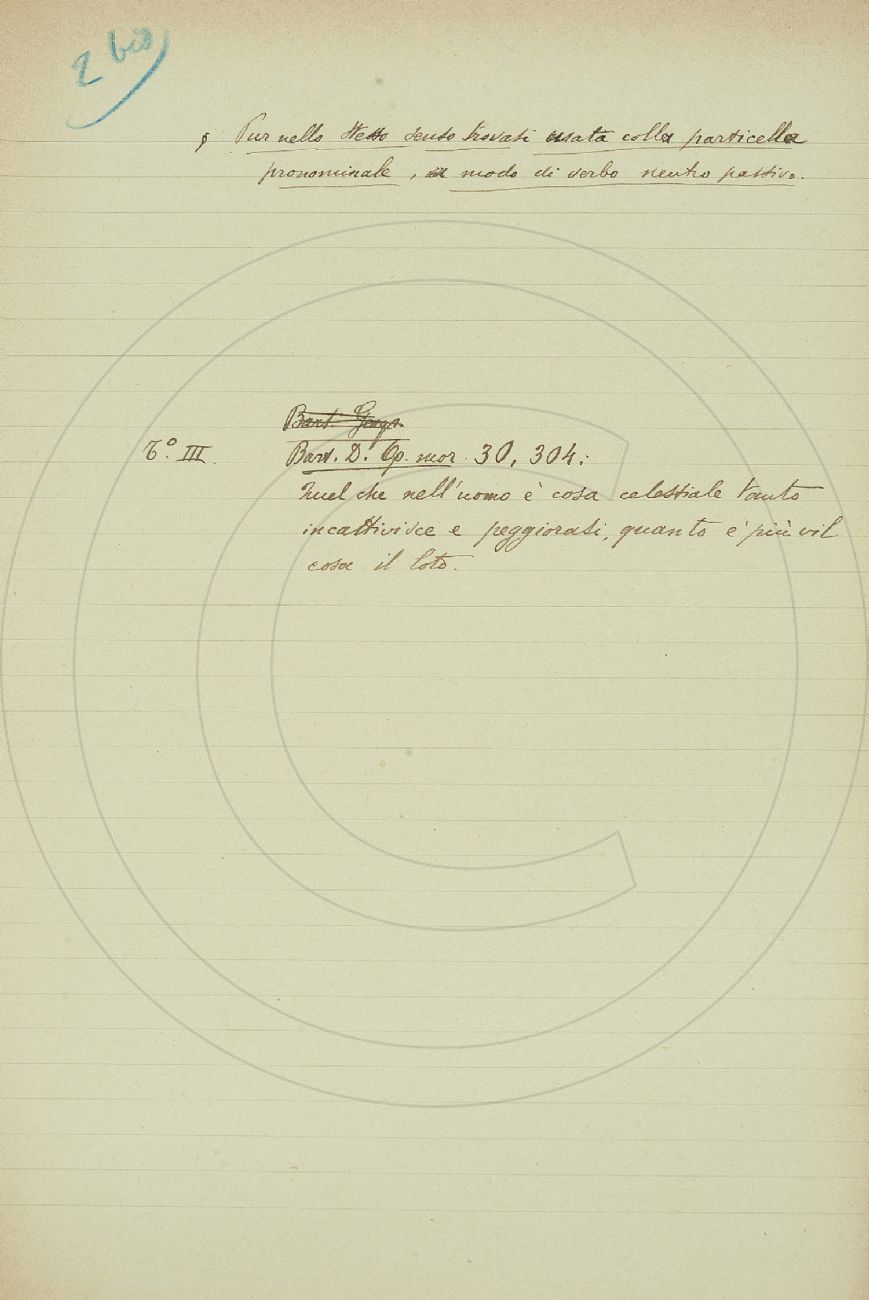 2 bis
§ Pur nello stesso senso trovasi usata colla particella
pronominale, a modo di verbo neutro passivo.
Bart.
T.º III. Bart. D. Op. mor. 30, 304:
Quel che nell'uomo è cosa celestiale tanto
incattivisce e peggiorasi, quanto è più vil
cosa il loto.